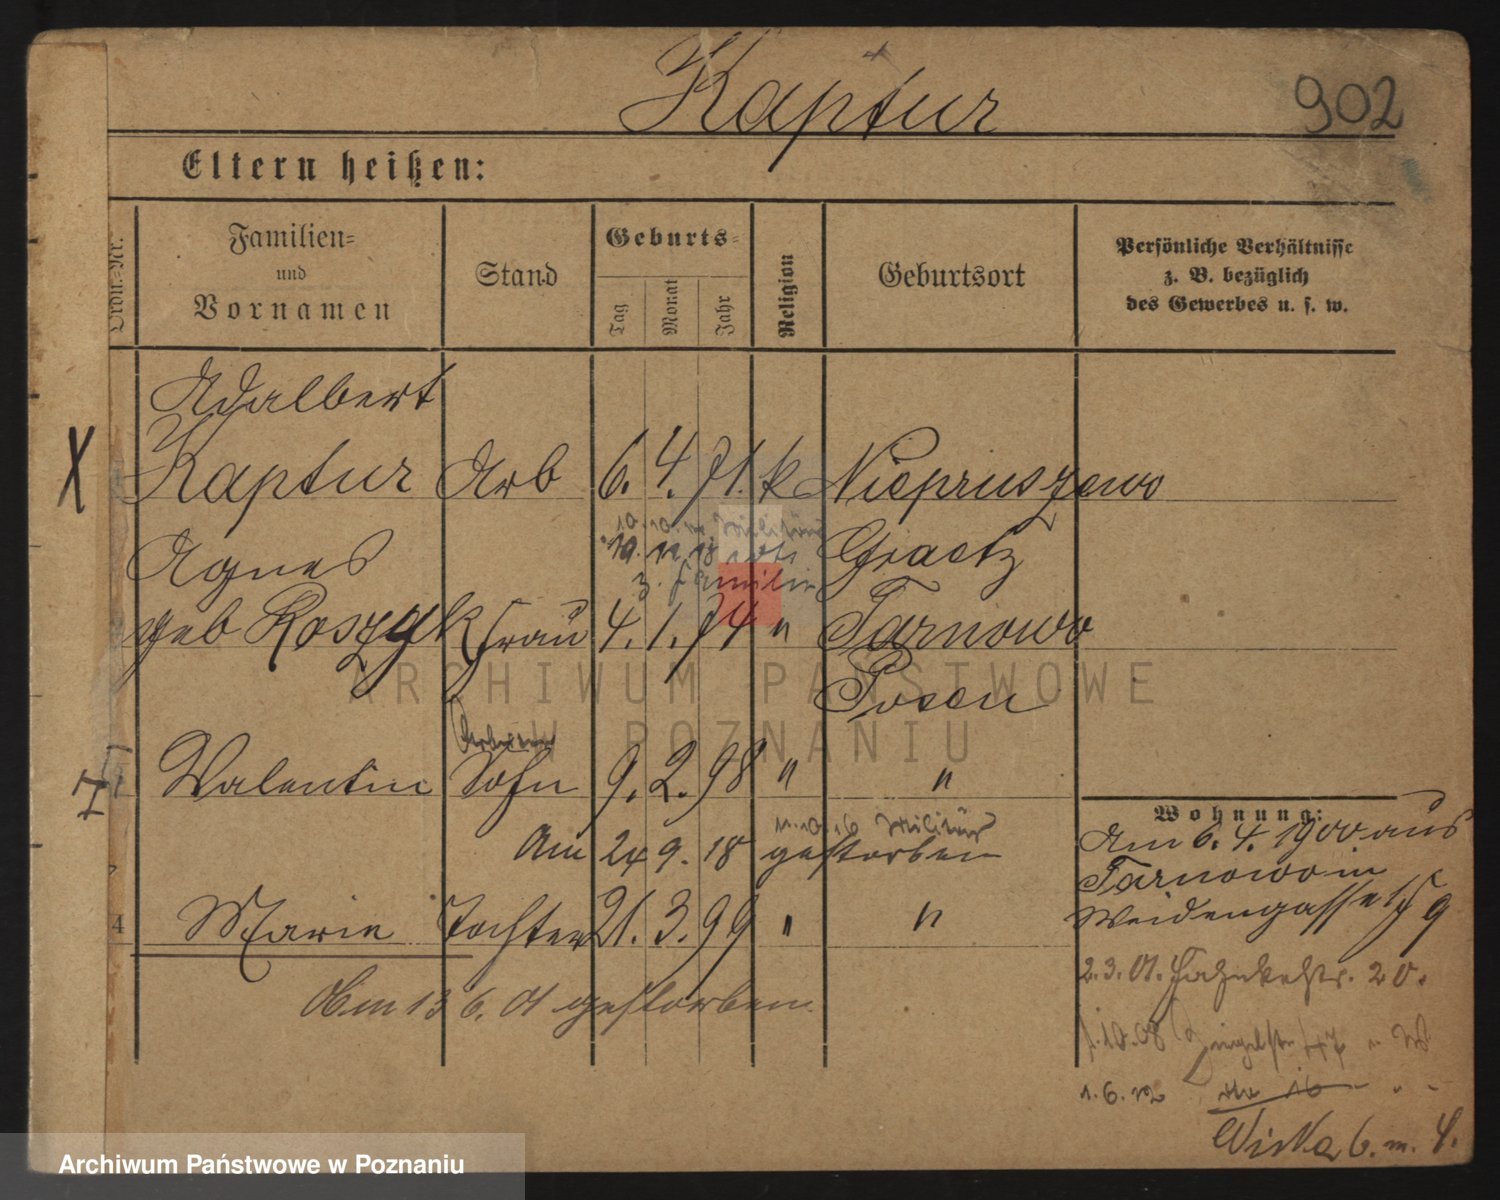 Kaptur
902
Eltern heißen:
Ordn.-Nr.
Familien- und Vornamen
Stand
Geburts-
Tag
Monat
Jahr
Religion
Geburtsort
Persönliche Verhältnisse
z. B. bezüglich
des Gewerbes u. s. w.
Adalbert
X Kaptur Arb 6. 4. 71. k Niepruszewo
10.10. Militär
Agnes Graetz
z. Familie
geb Koszyk Frau 4. 1. 74 " Tarnowo
Posen
Valentin Sohn 9. 2. 98 " "
1.10.16 Militär
Am 24 9. 18 gestorben
4 Marie Tochter 21. 3. 99 " "
Am 13 6. 01 gestorben
Wohnung:
Am 6. 4. 1900 aus
Tarnowo in
Weidengasse 9
2.3.01. 20.
1.10.08 47 " W
1.6.12 16 " "
6. m. 4.
ARCHIWUM PAŃSTWOWE
W POZNANIU
Archiwum Państwowe w Poznaniu